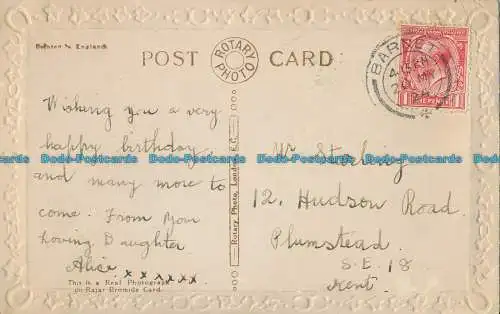 Printed in England
POST CARD
ROTARY PHOTO
BARNET
4.15 PM
20 MY
24
Wishing you a very
happy birthday
and many more to
come. From your
loving Daughter
Alice xxxxxx
This is a Real Photograph
on Rajar Bromide Card.
Rotary Photo, London, E.C.
Mr Sterling
12, Hudson Road.
Plumstead.
S.E. 18
Kent.
Dodo-Postcards Dodo-Postcards Dodo-Postcards Dodo-Postcards Dodo-Postcards